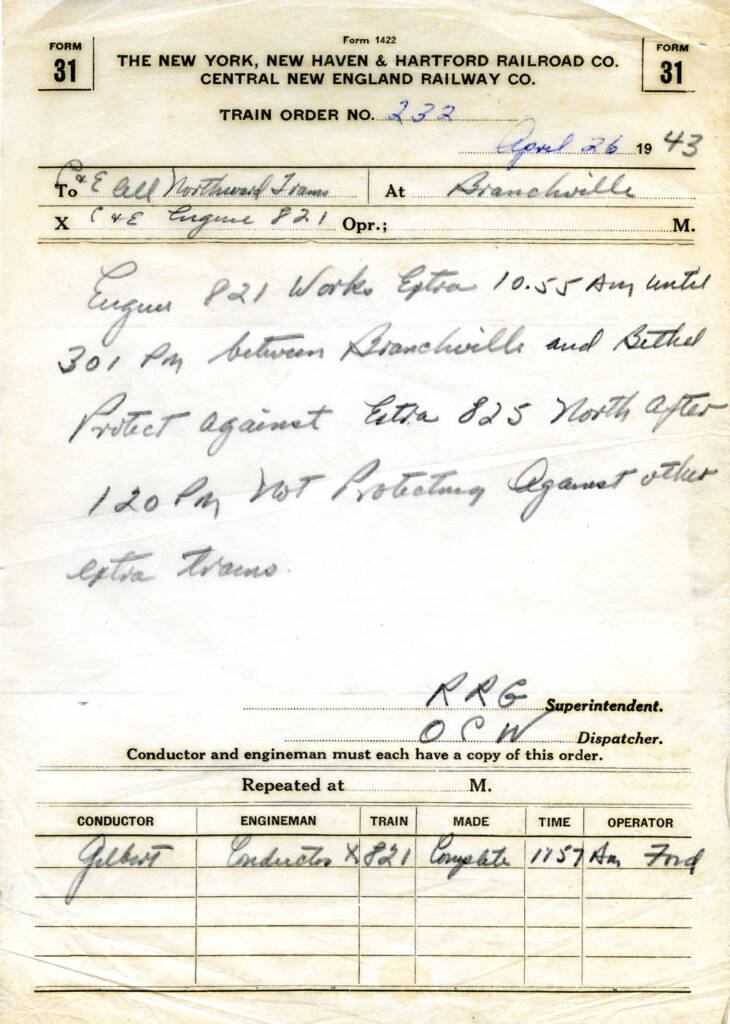 Form 1422
FORM 31
FORM 31
THE NEW YORK, NEW HAVEN & HARTFORD RAILROAD CO.
CENTRAL NEW ENGLAND RAILWAY CO.
TRAIN ORDER NO. 232
April 26 1943
To C & E All Northward Trains At Branchville
X C & E Engine 821 Opr.; M.
Engine 821 Works Extra 10.55 Am until
301 Pm between Branchville and Bethel
Protect against Extra 825 North After
120 Pm Not Protecting Against other
extra trains.
R R G Superintendent.
O C W Dispatcher.
Conductor and engineman must each have a copy of this order.
Repeated at M.
CONDUCTOR ENGINEMAN TRAIN MADE TIME OPERATOR
Gilbert Conductor X 821 Complete 1157 Am Ford